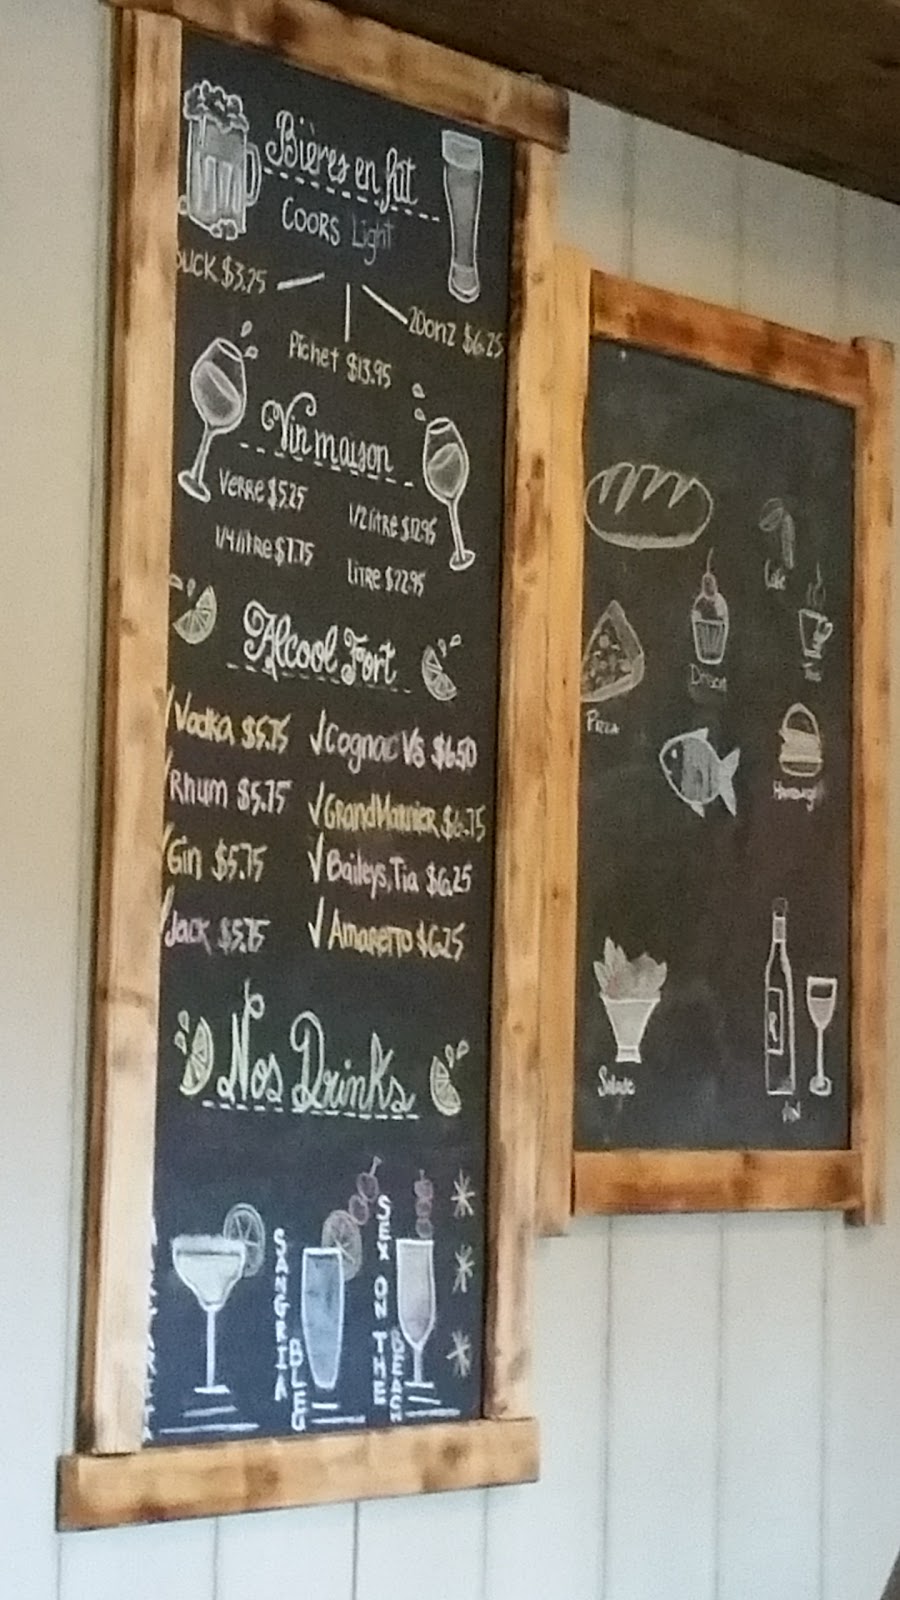 Bières en fût
COORS Light
BUCK $3.75
20onz $6.25
Pichet $13.95
Vin maison
Verre $5.25
1/2 litre $12.95
1/4 litre $7.75
Litre $22.95
Alcool Fort
√Vodka $5.75 √Cognac VS $6.50
√Rhum $5.75 √GrandMarnier $6.75
√Gin $5.75 √Baileys, Tia $6.25
√Jack $5.75 √Amaretto $6.25
Nos Drinks
SANGRIA
BLEU
SEX ON THE
BEACH
Café
Thé
Dessert
Pizza
Hamburger
Salade
VIN